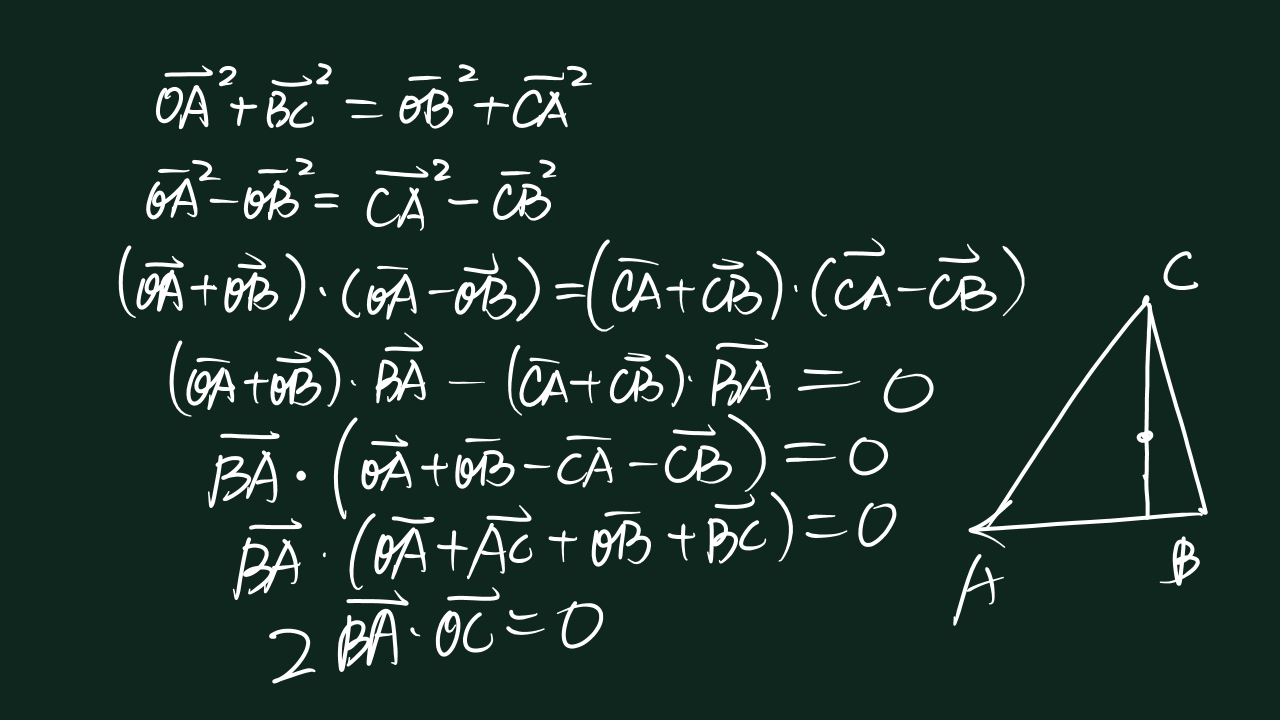 $\overrightarrow{OA}^2 + \overrightarrow{BC}^2 = \overrightarrow{OB}^2 + \overrightarrow{CA}^2$
$\overrightarrow{OA}^2 - \overrightarrow{OB}^2 = \overrightarrow{CA}^2 - \overrightarrow{CB}^2$
$(\overrightarrow{OA} + \overrightarrow{OB}) \cdot (\overrightarrow{OA} - \overrightarrow{OB}) = (\overrightarrow{CA} + \overrightarrow{CB}) \cdot (\overrightarrow{CA} - \overrightarrow{CB})$
$(\overrightarrow{OA} + \overrightarrow{OB}) \cdot \overrightarrow{BA} - (\overrightarrow{CA} + \overrightarrow{CB}) \cdot \overrightarrow{BA} = 0$
$\overrightarrow{BA} \cdot (\overrightarrow{OA} + \overrightarrow{OB} - \overrightarrow{CA} - \overrightarrow{CB}) = 0$
$\overrightarrow{BA} \cdot (\overrightarrow{OA} + \overrightarrow{AC} + \overrightarrow{OB} + \overrightarrow{BC}) = 0$
$2 \overrightarrow{BA} \cdot \overrightarrow{OC} = 0$
C
A
B